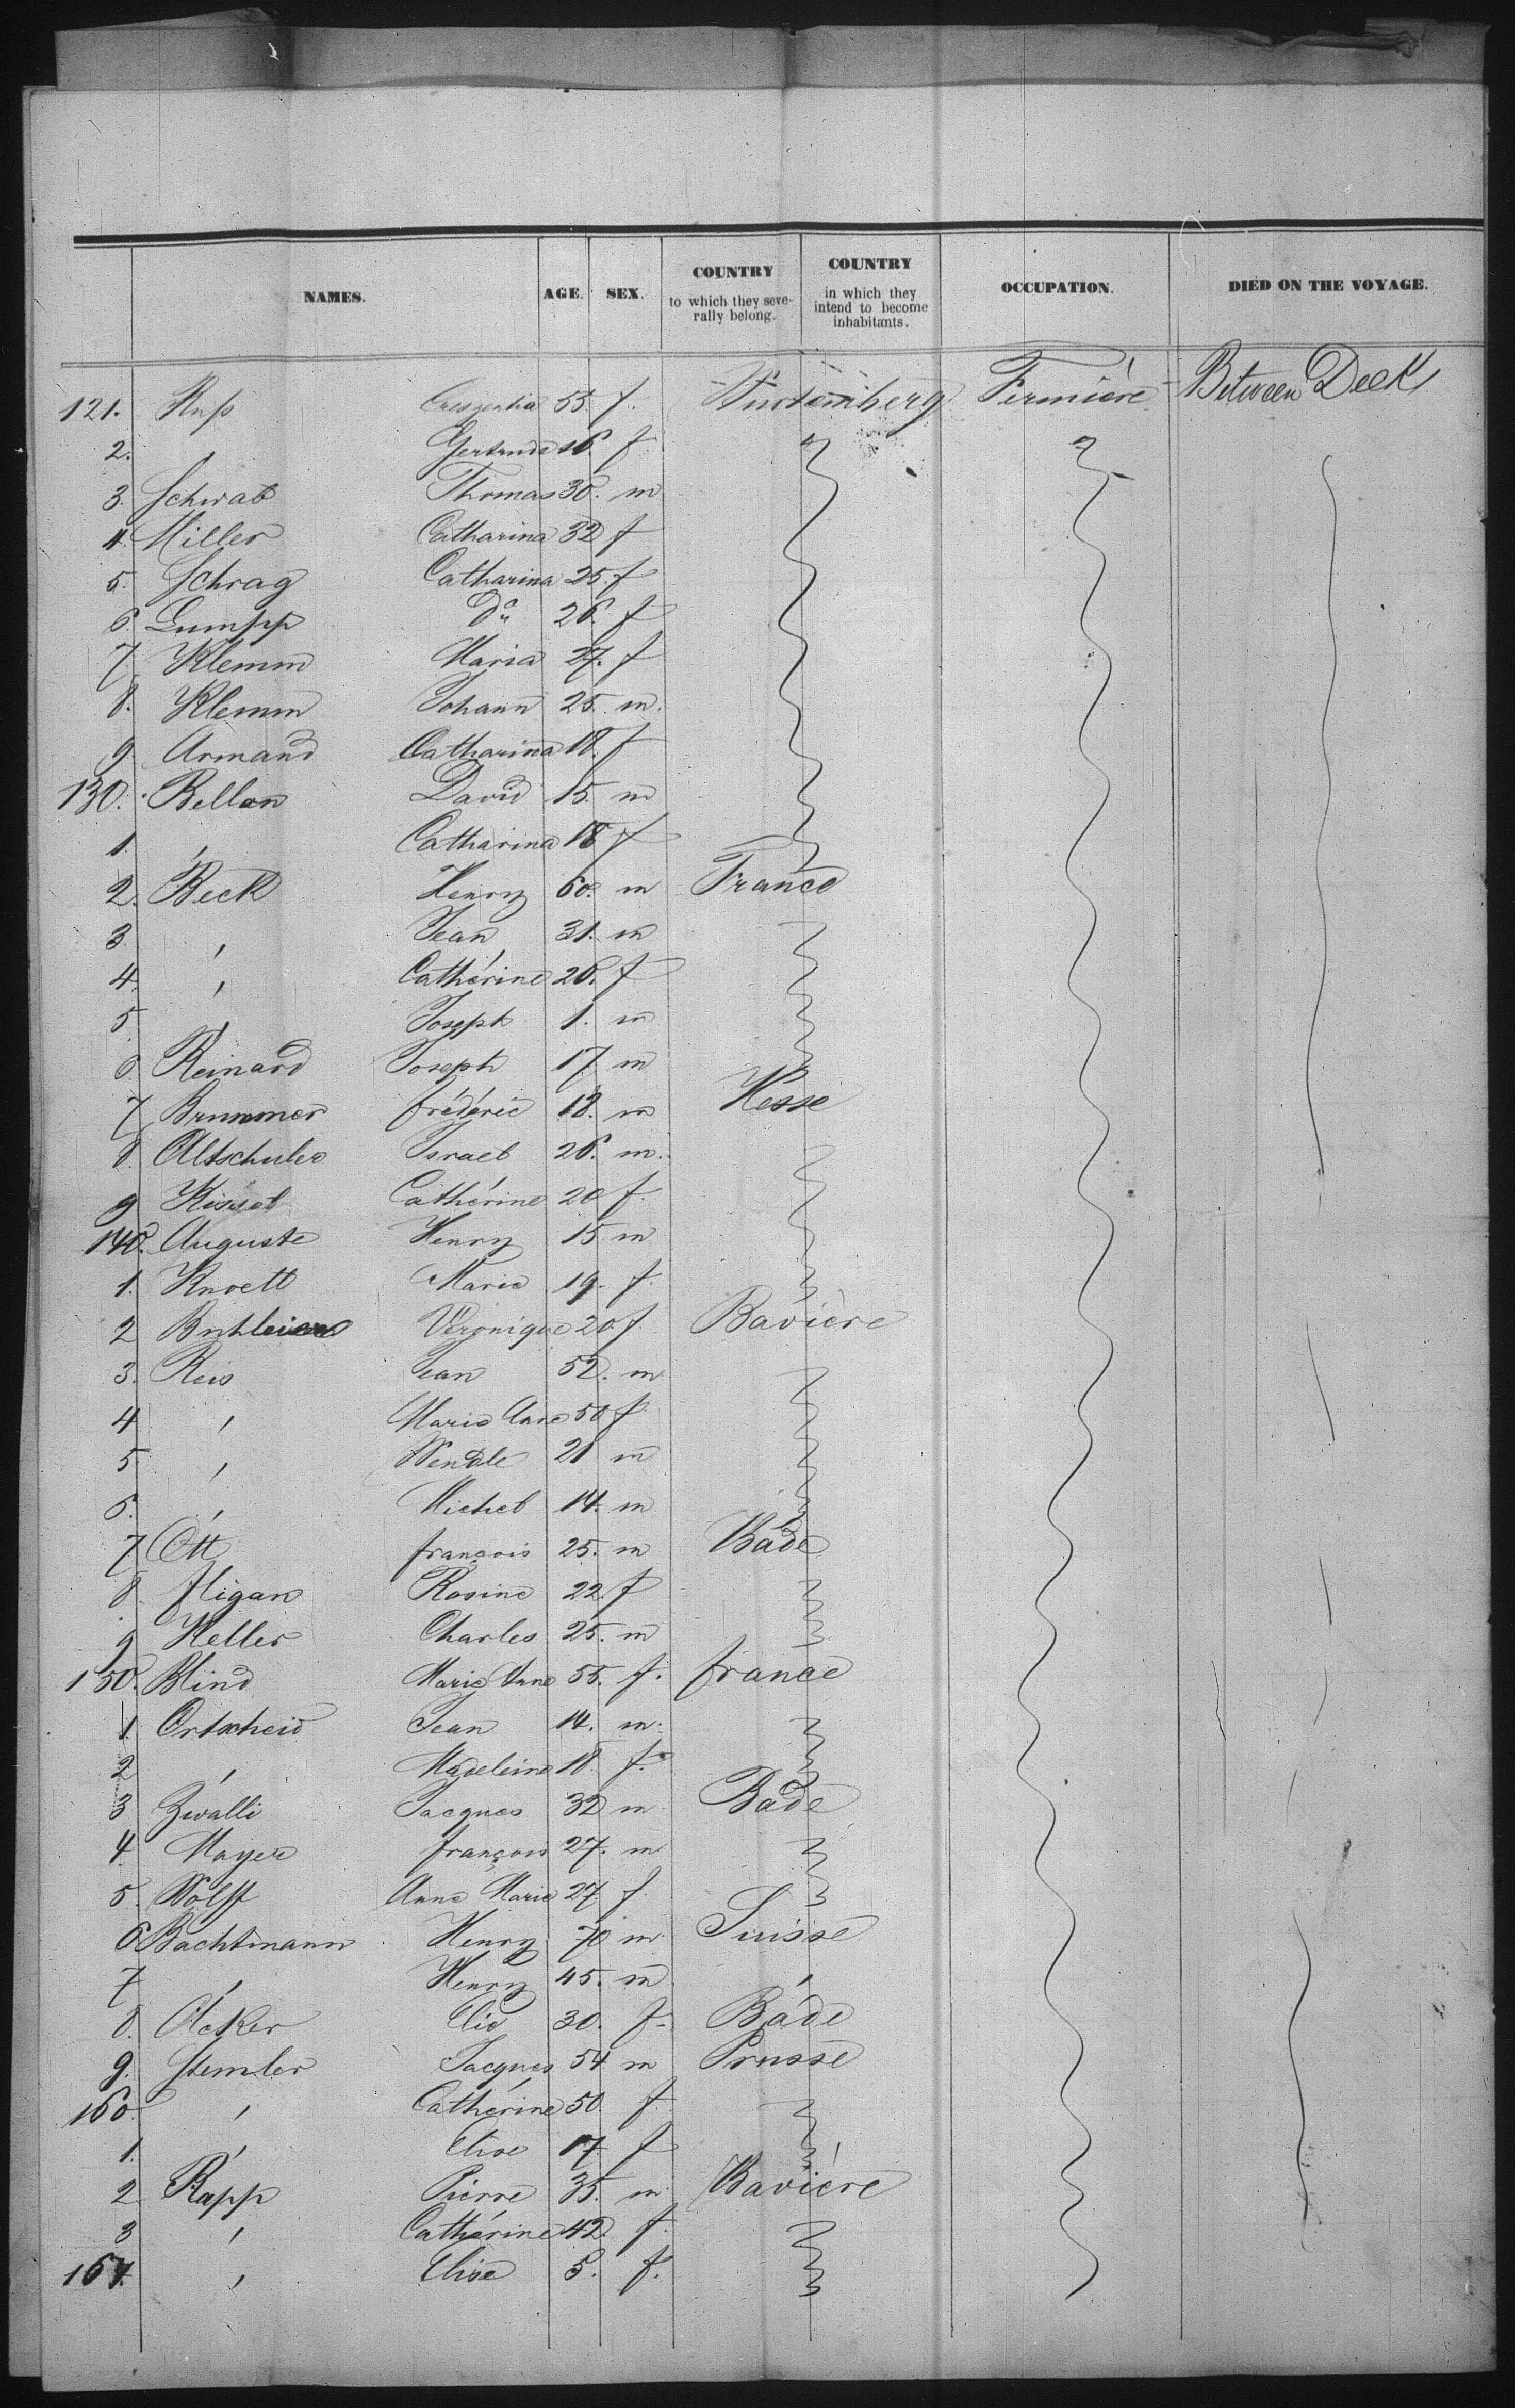 NAMES. AGE. SEX. COUNTRY to which they seve- rally belong. COUNTRY in which they intend to become inhabitants. OCCUPATION. DIED ON THE VOYAGE.
121. Ruß Crescentia 55. f. Wurtemberg Fermière Between Deck
2. , Gertruda 16. f.
3. Schwab Thomas 30. m
4. Miller Catharina 32 f
5. Schrag Catharina 25. f
6. Gumpp Do 26. f
7 Klemm Maria 27. f
8. Klemm Johann 25. m.
9 Armand Catharina 18. f
130. Bellon David 15. m
1. , Catharina 18 f
2. Beck Henry 60. m France
3 , Jean 31. m
4. , Cathérine 26. f
5 , Joseph 1. m
6. Reinard Joseph 17 m
7 Brummer frédéric 18. m Hesse
8 Altschuler Israel 26. m.
9 Kissel Cathérine 20 f.
140. Auguste Henry 15 m
1. Knoell Marie 19. f.
2 Véronique 20 f. Bavière
3. Reis Jean 52. m
4 , Marie Anne 50 f.
5 , Wendle 21 m
6. , Michel 14. m
7 Ott françois 25. m Bade
8. fligan Rosine 22. f
9 Heller Charles 25. m
150. Blind Marie Anne 55. f. france
1. Ortscheid Jean 14. m.
2 , Madeleine 18. f.
3 Zwalli Jacques 32 m Bade
4. Mayer françois 27. m
5. Wolff Anne Marie 27 f.
6 Bachtmann Henry 70 m Suisse
7 , Henry 45. m ,
8. Acker 30. f. Bade
9. Stemler Jacques 54 m Prusse
160. , Cathérine 50 f
1. , Elise 17. f
2 Rapp Pierre 35. m Bavière
3 , Cathérine 42. f.
164. , Elise 5. f.